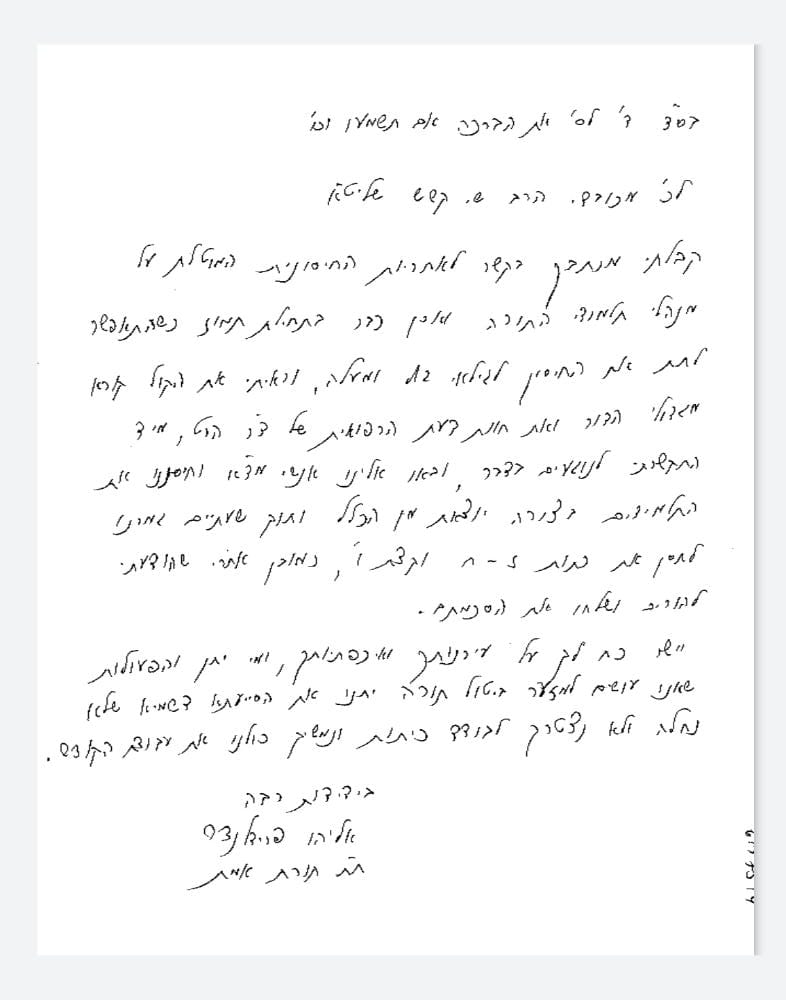 בס"ד ד' לס' את הברכה אשר תשמעון וכו'
לכ' מכובדי. הרב ש. קשש שליט"א
קבלתי מכתבך בקשר לאחריות החיסונית המוטלת על
מנהלי תלמודי התורה ואכן כבר בתחילת תמוז כשהתאפשר
לתת את החיסון לגילאי 12 ומעלה, וראיתי את הקול קורא
מגדולי הדור ואת חוות דעת הרפואית של ד"ר הרט, מיד
התקשרתי לנוגעים בדבר, ובאו אלינו אנשי מד"א וחיסנו את
התלמידים בצורה יוצאת מן הכלל ותוך שעתיים גמרנו
לחסן את כתות ז - ח וקצת ו', כמובן אחרי שהודעתי
להורים ושלחו את הסכמתם.
יישר כח לך על עירנותך ואיכפתיותך, ומי יתן והפעולות
שאנו עושים למזער ביטול תורה יתנו את הסייעתא דשמיא שלא
נחלה ולא נצטרך לבודד כיתות ונמשיך כולנו את עבודת הקודש.
בידידות רבה
אליהו פרידלנדר
ת"ת תורת אמת